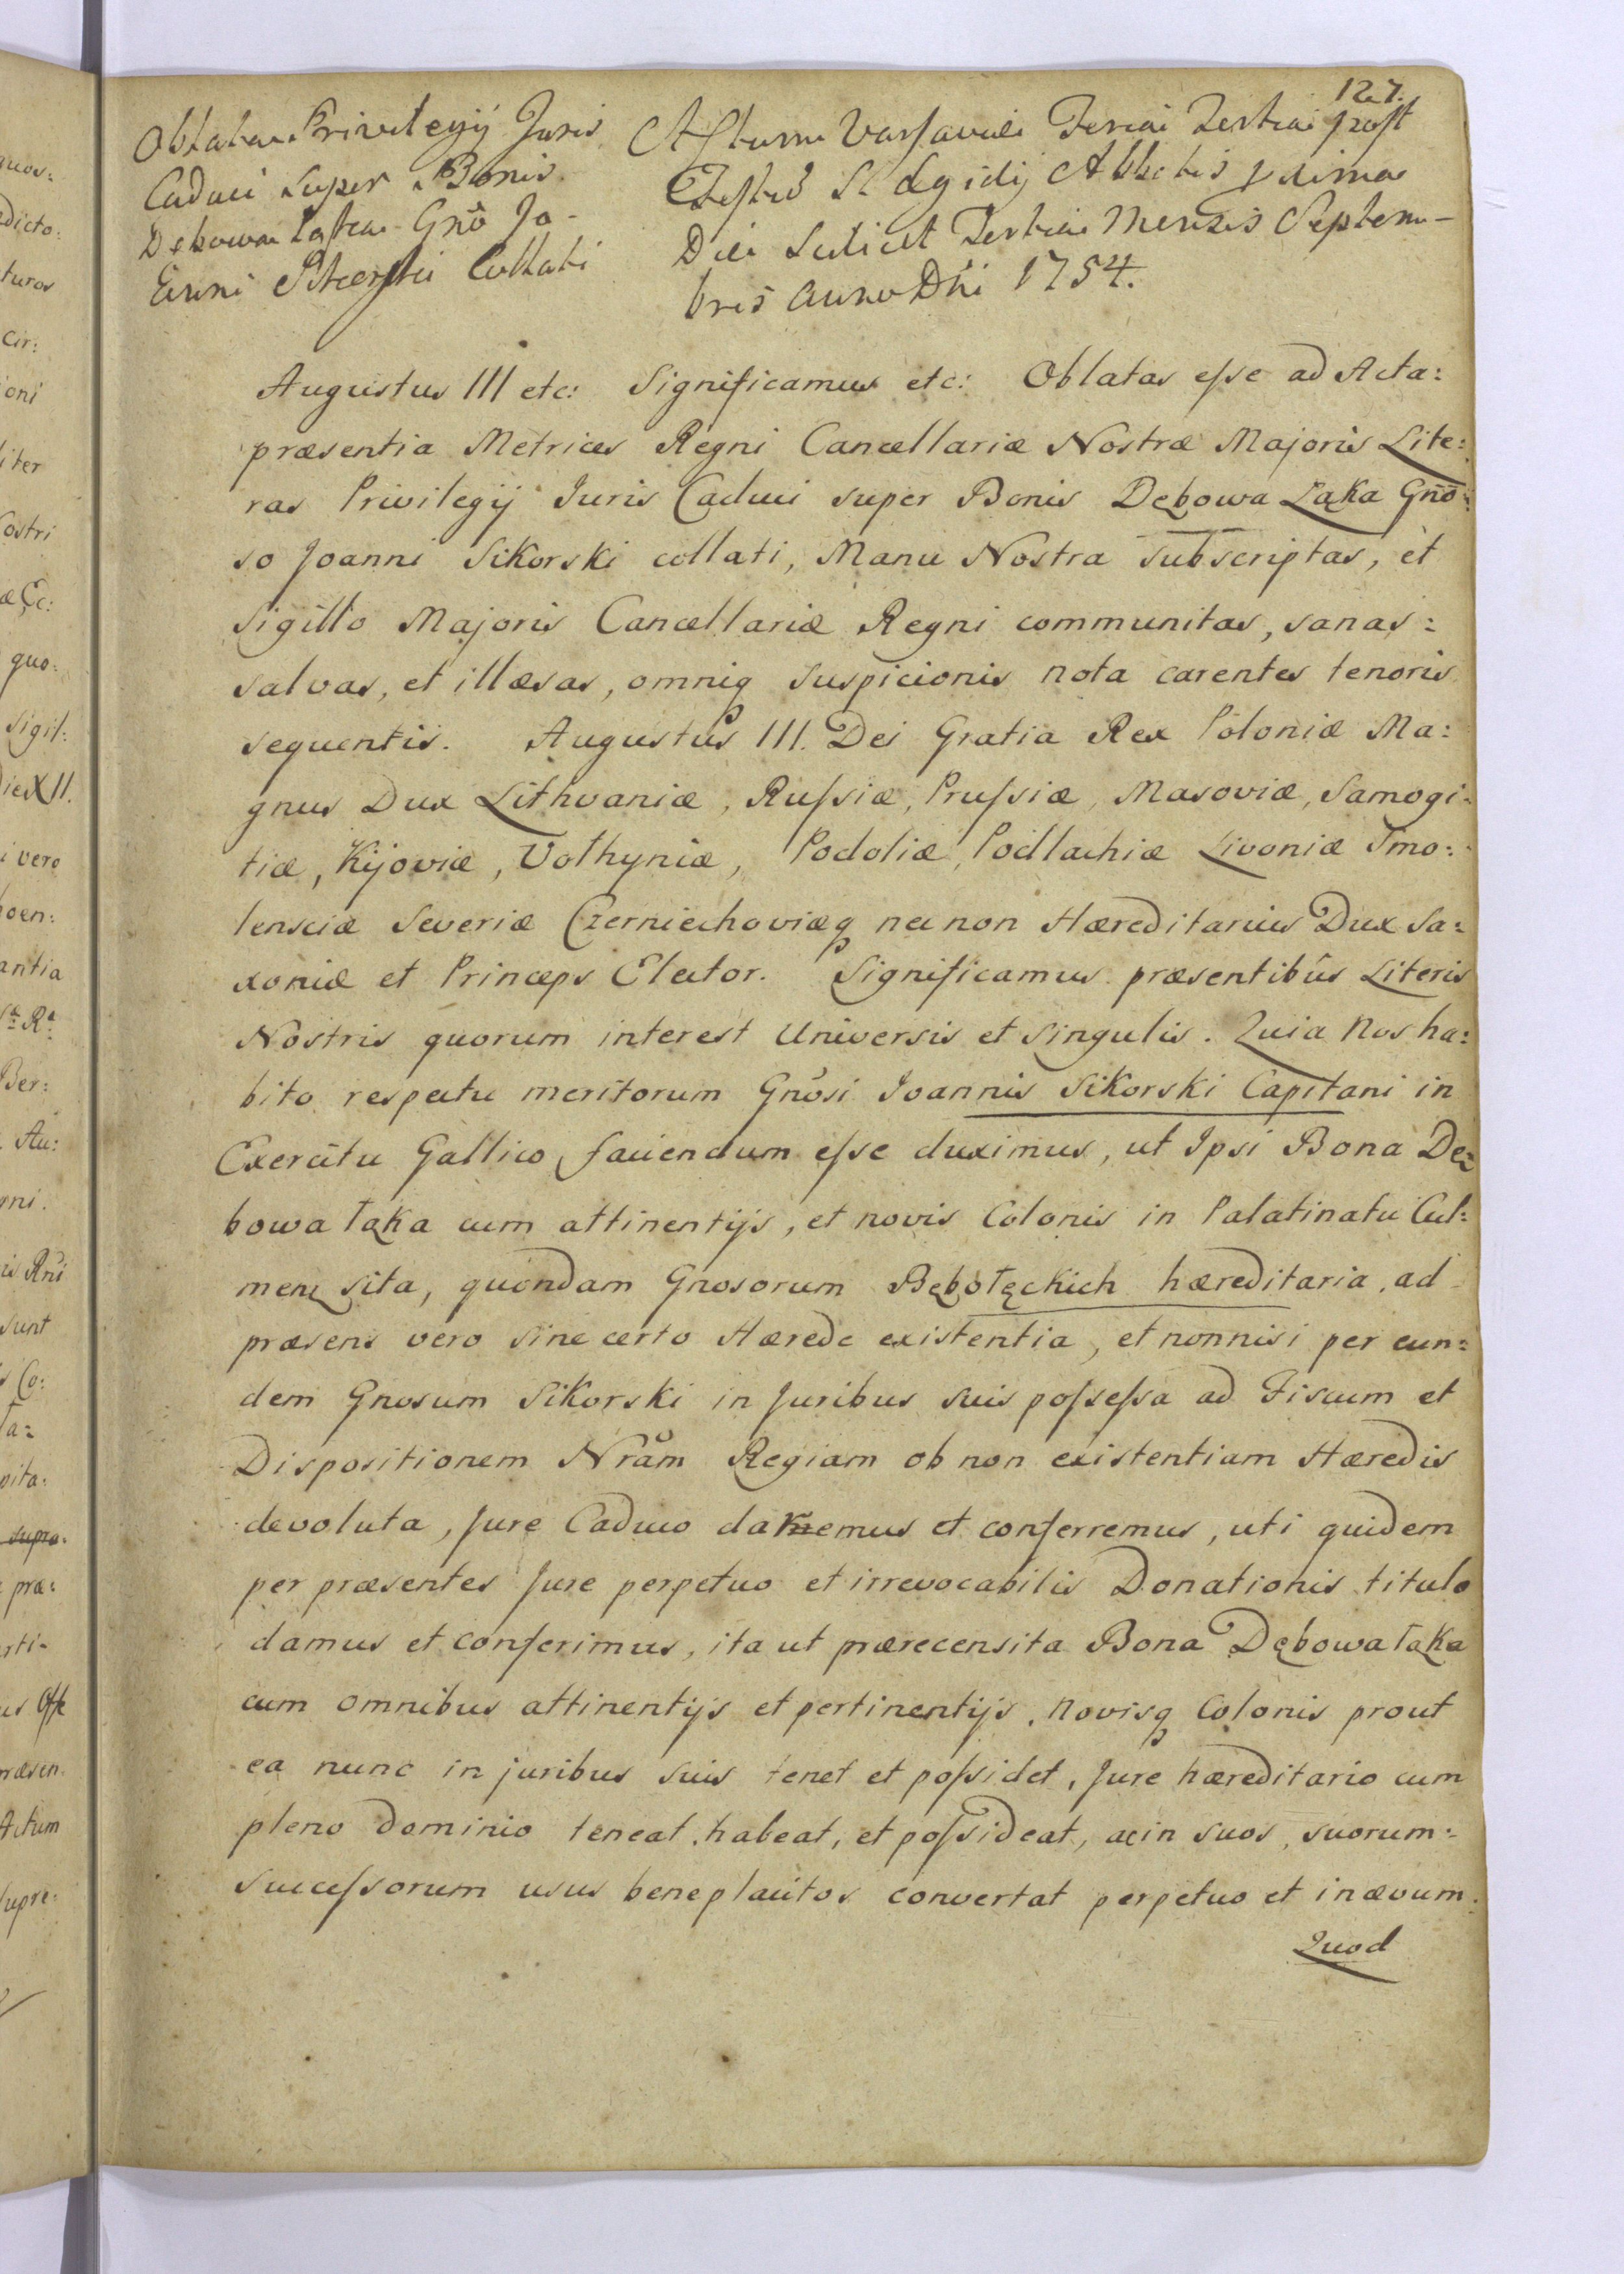 127.
Oblata Privilegij Juris
Caduci super Bonis
DebowaLąka Gnŏ Jo-
anni Sikorski Collati
Actum Varsaviæ Feria Tertia post
Festũ S. Ægidij Abbatis proxima
Die Scilicet Tertia Mensis Septem-
bris Anno Dñi 1754.
Augustus III etc: Significamus etc: Oblatas eſse ad Acta:
præsentia Metrices Regni Cancellariæ Nostræ Majoris Lite:
ras Privilegij Iuris Caduci super Bonis Dębowa Łąka Gño:
so Joanni Sikorski collati, Manu Nostra subscriptas, et
Sigillo Majoris Cancellariæ Regni communitas, sanas:
salvas, et illæsas, omniq suspicionis nota carentes tenoris
sequentis. Augustus III. Dei Gratia Rex Poloniæ Ma:
gnus Dux Lithvaniæ, Ruſsiæ, Pruſsiæ, Masoviæ, Samogi:
tiæ, Kijoviæ, Volhyniæ, Podoliæ, Podlachiæ Livoniæ Smo:
lensciæ Severiæ Czerniechoviæq nec non Hæreditarius Dux Sa:
xoniæ et Princeps Elector. Significamus præsentibus Literis
Nostris quorum interest Universis et singulis. Quia Nos ha:
bito respectu meritorum Gnŏsi Ioannis Sikorski Capitani in
Exercitu Gallico faciendum eſse duximus, ut Ipsi Bona Dę:
bowa Łąka cum attinentijs, et novis Colonis in Palatinatu Cul:
men sita, quondam Gnosorum Bębołęckich hæreditaria, ad
præsens vero sine certo Hærede existentia, et nonnisi per eun:
dem Gnosum Sikorski in Juribus suis poſseſsa ad Fiscum et
Dispositionem Nrãm Regiam ob non existentiam Hæredis
devoluta, Jure Caduco daremus et conferremus, uti quidem
per præsentes Jure perpetuo et irrevocabilis Donationis titulo
damus et conferimus, ita ut prærecensita Bona Dębowa Łąka
cum omnibus attinentijs et pertinentijs, novisq Colonis prout
ea nunc in juribus suis tenet et poſsidet, Jure hæreditario cum
pleno dominio teneat, habeat, et poſsideat, ac in suos, suorum:
succeſsorum usus beneplacitos convertat perpetuo et in ævum.
Quod